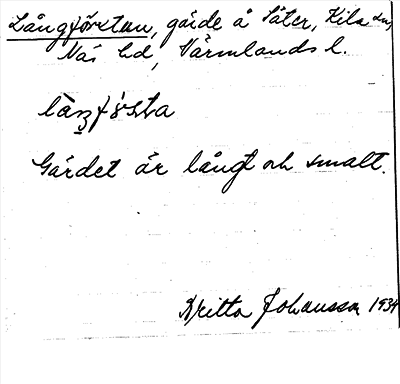 Långförstan, gärde å Säter, Kila sn,
Näs hd, Värmlands l.
Gärdet är långt och smalt.
Britta Johansson 1934